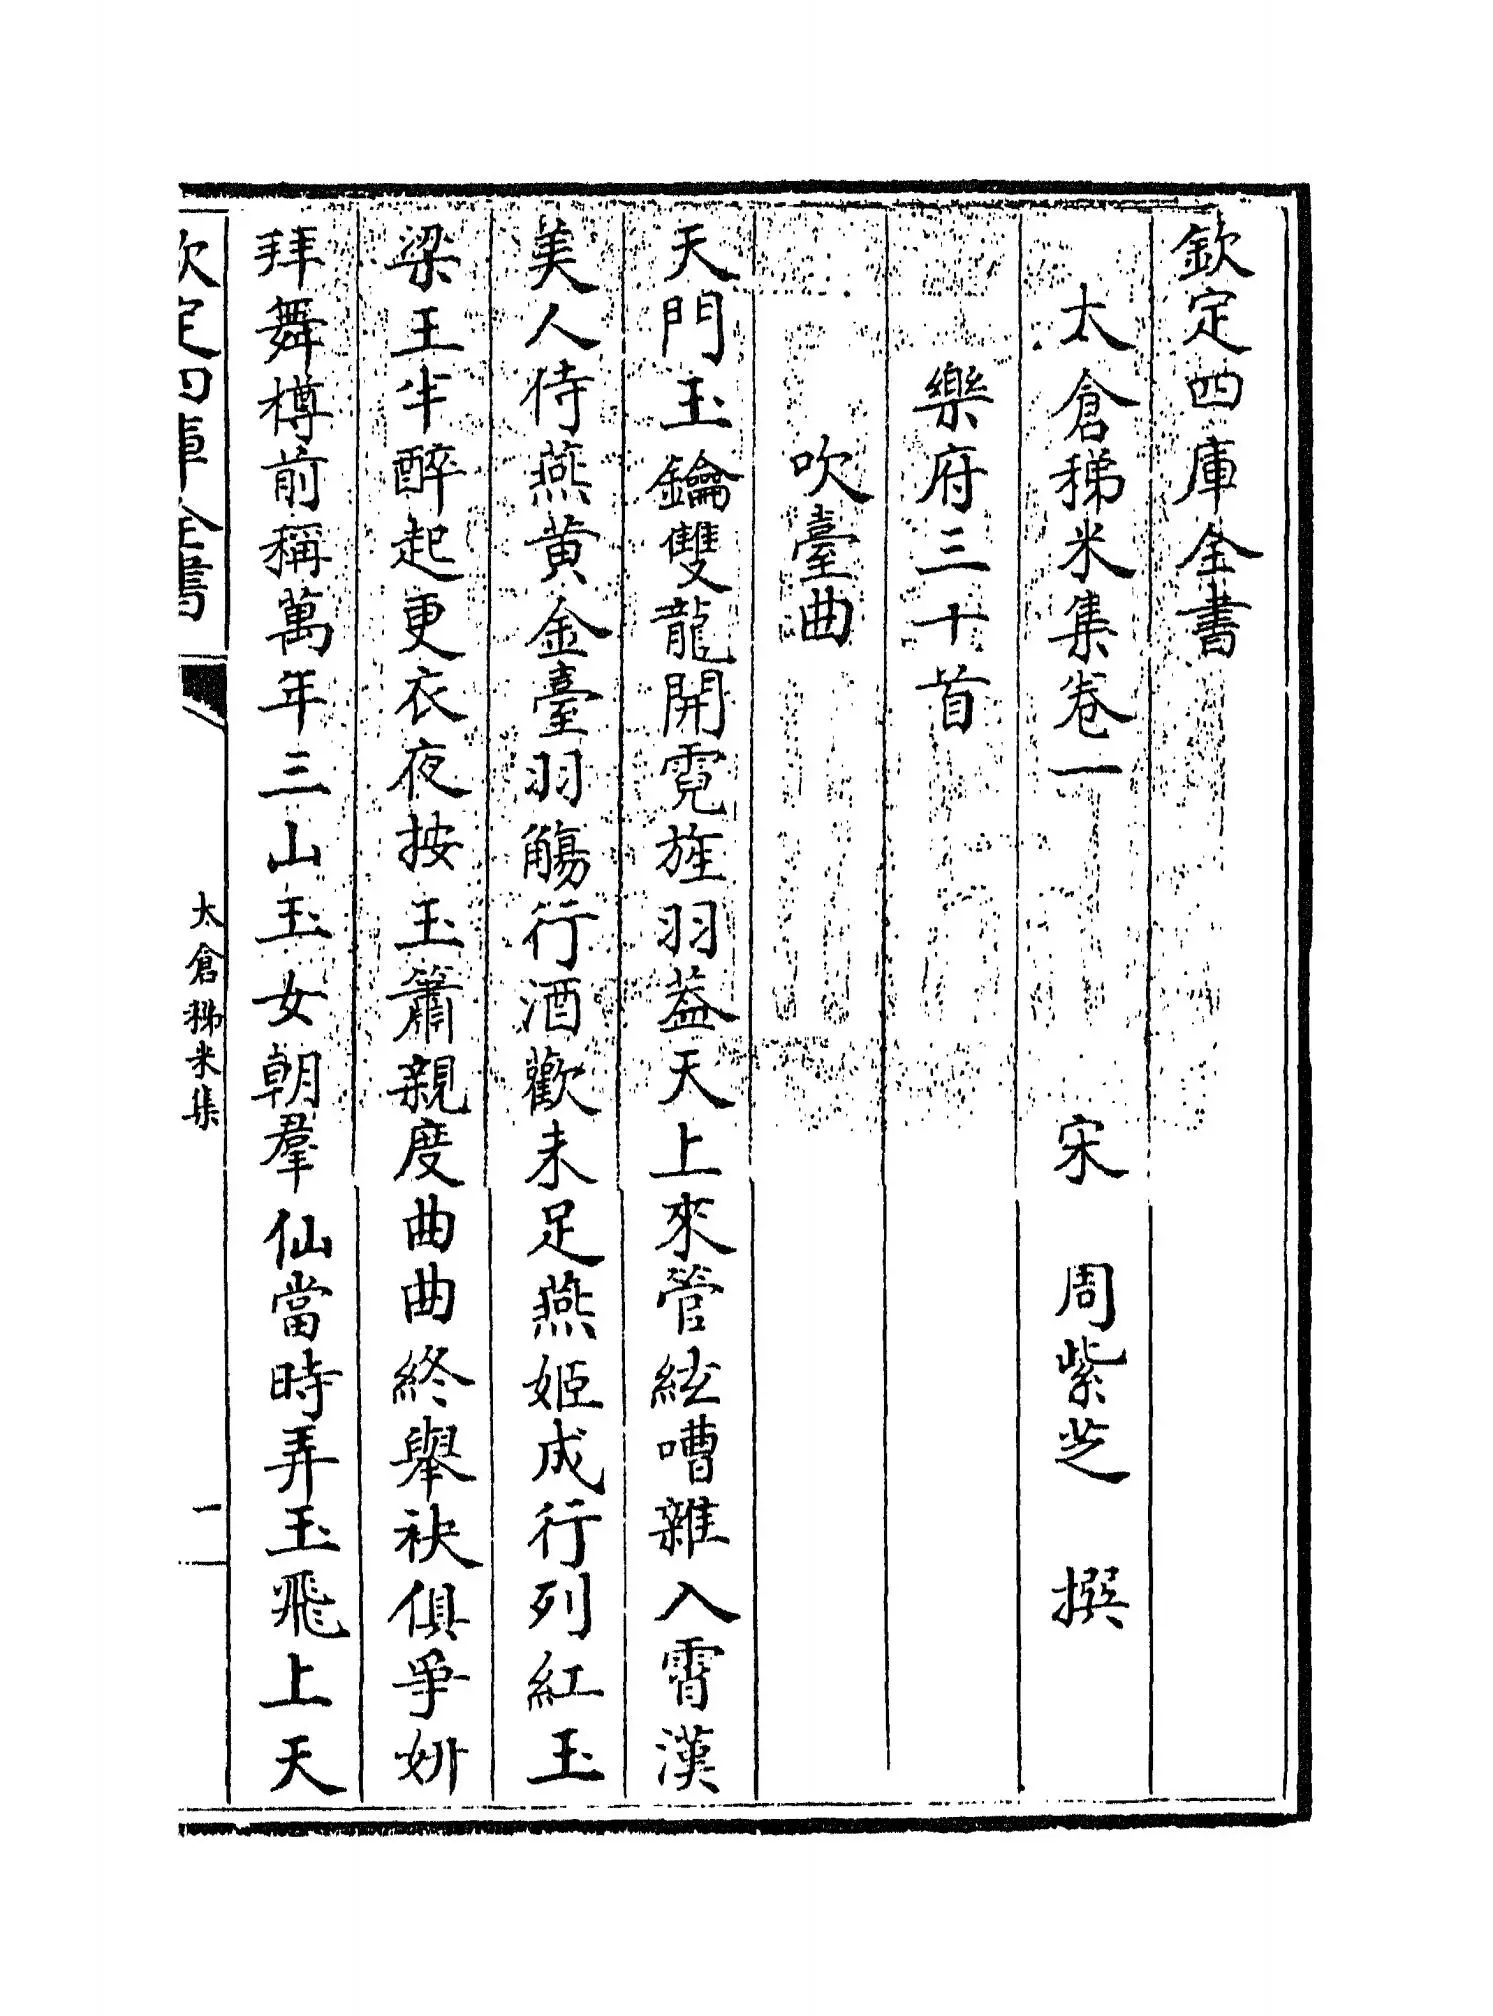 欽定四庫全書
太倉稊米集卷一　宋　周紫芝　撰
樂府三十首
吹臺曲
天門玉鑰雙龍開霓旌羽葢天上來管絃嘈雜入霄漢
美人侍燕黄金臺羽觴行酒歡未足燕姬成行列紅玉
梁王半醉起更衣夜按玉簫親度曲曲終舉袂俱爭妍
拜舞樽前稱萬年三山玉女朝羣仙當時弄玉飛上天
欽定四庫全書
太倉稊米集
一